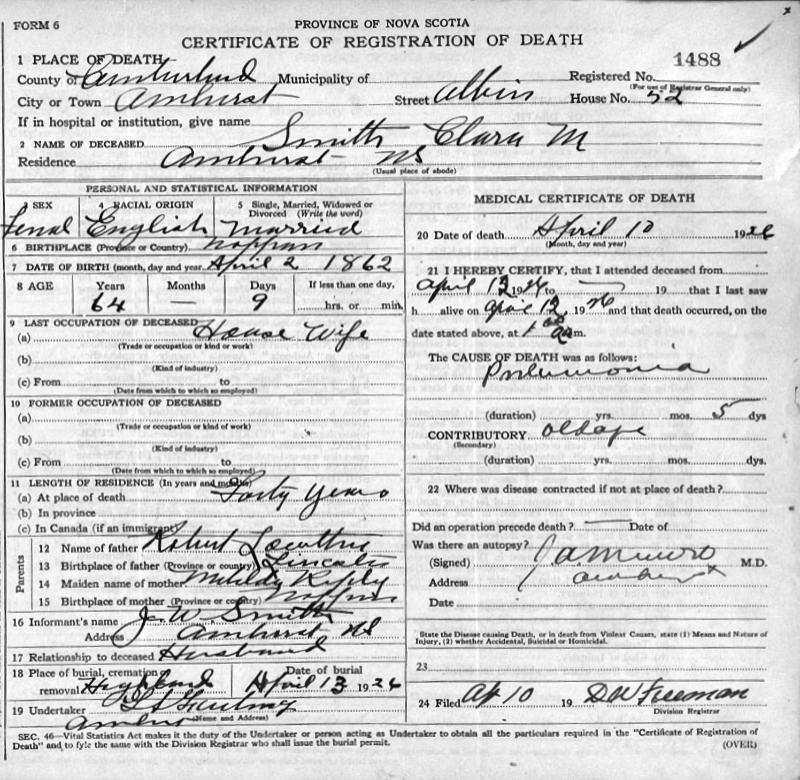 FORM 6
PROVINCE OF NOVA SCOTIA
CERTIFICATE OF REGISTRATION OF DEATH
1488
1 PLACE OF DEATH
County of Cumberland Municipality of
Registered No.
(For use of Registrar General only)
City or Town Amherst Street Albion House No. 52
If in hospital or institution, give name
2 NAME OF DECEASED Smith Clara M
Residence Amherst NS
(Usual place of abode)
PERSONAL AND STATISTICAL INFORMATION
3 SEX 4 RACIAL ORIGIN 5 Single, Married, Widowed or Divorced (Write the word)
Femal English Married
6 BIRTHPLACE (Province or Country) Nappan
7 DATE OF BIRTH (month, day and year) April 2 1862
8 AGE Years Months Days If less than one day,
64 — 9 hrs. or min.
9 LAST OCCUPATION OF DECEASED
(a) House Wife
(Trade or occupation or kind of work)
(b)
(Kind of industry)
(c) From to
(Date from which to which so employed)
10 FORMER OCCUPATION OF DECEASED
(a)
(Trade or occupation or kind of work)
(b)
(Kind of industry)
(c) From to
(Date from which to which so employed)
11 LENGTH OF RESIDENCE (In years and months)
(a) At place of death Forty Years
(b) In province
(c) In Canada (if an immigrant)
Parents
12 Name of father Robert
13 Birthplace of father (Province or country)
14 Maiden name of mother
15 Birthplace of mother (Province or country) Nappan
16 Informant's name J. W. Smith
Address Amherst NS
17 Relationship to deceased Husband
18 Place of burial, cremation Date of burial
removal Highland April 13 1926
19 Undertaker
(Name and Address)
Amherst
MEDICAL CERTIFICATE OF DEATH
20 Date of death April 10 1926
(Month, day and year)
21 I HEREBY CERTIFY, that I attended deceased from
April 1926 to — 19 that I last saw
h alive on April 1926 and that death occurred, on the
date stated above, at m.
The CAUSE OF DEATH was as follows:
Pneumonia
(duration) yrs. mos. 5 dys
CONTRIBUTORY old age
(Secondary)
(duration) yrs. mos. dys.
22 Where was disease contracted if not at place of death?
Did an operation precede death? — Date of
Was there an autopsy?
(Signed) M.D.
Address Amherst
Date
State the Disease causing Death, or in death from Violent Causes, state (1) Means and Nature of
Injury, (2) whether Accidental, Suicidal or Homicidal.
23
24 Filed Ap 10 19 D W Freeman
Division Registrar
SEC. 46—Vital Statistics Act makes it the duty of the Undertaker or person acting as Undertaker to obtain all the particulars required in the "Certificate of Registration of
Death" and to fyle the same with the Division Registrar who shall issue the burial permit.
(OVER)